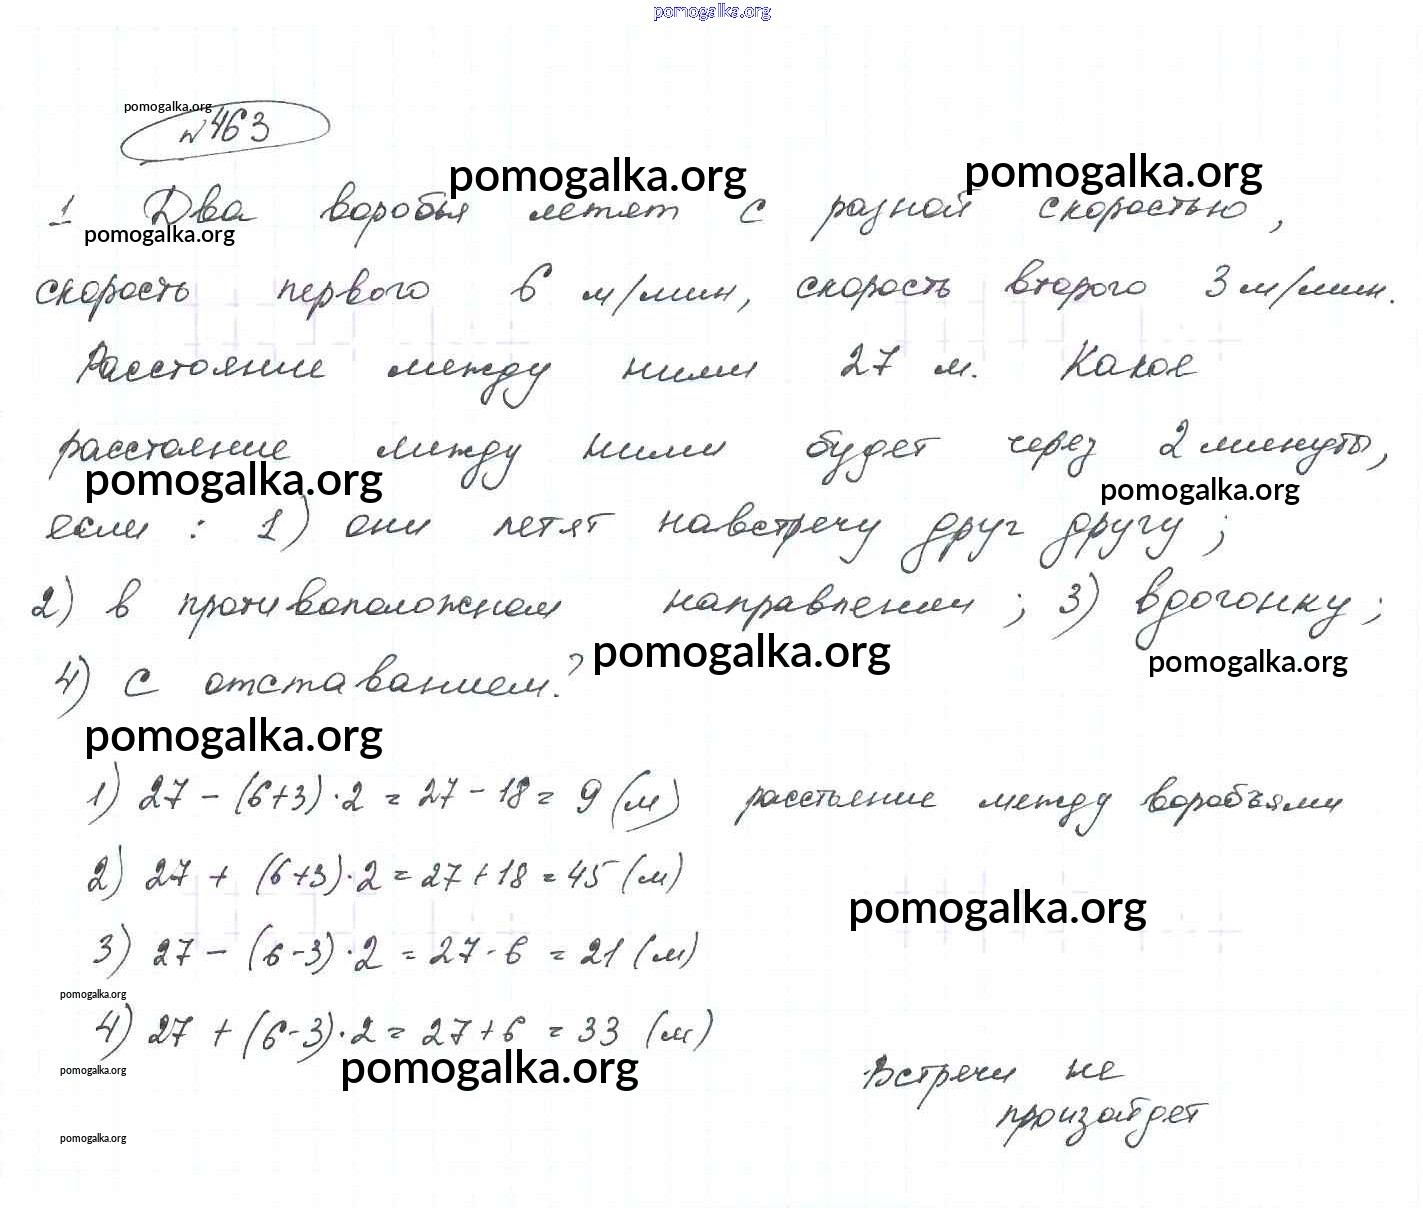 pomogalka.org
pomogalka.org
№463
pomogalka.org pomogalka.org
1 Два воробья летят с разной скоростью,
pomogalka.org
скорость первого 6 м/мин, скорость второго 3 м/мин.
Расстояние между ними 27 м. Какое
расстояние между ними будет через 2 минуты,
pomogalka.org pomogalka.org
если : 1) они летят навстречу друг другу ;
2) в противоположном направлении ; 3) вдогонку ;
pomogalka.org pomogalka.org
4) с отставанием.?
pomogalka.org
1) 27 - (6+3)·2 = 27 - 18 = 9 (м) расстоение между воробъями
2) 27 + (6+3)·2 = 27 + 18 = 45 (м)
pomogalka.org
3) 27 - (6-3)·2 = 27 - 6 = 21 (м)
pomogalka.org
4) 27 + (6-3)·2 = 27 + 6 = 33 (м)
pomogalka.org pomogalka.org
Встречи не
произойдет
pomogalka.org